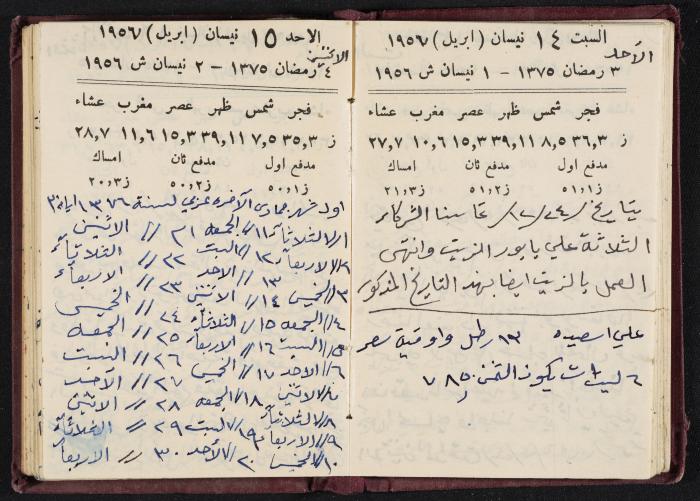 السبت ١٤ نيسان (ابريل) ١٩٥٦
الأحد
٣ رمضان ١٣٧٥ – ١ نيسان ش ١٩٥٦
فجر شمس ظهر عصر مغرب عشاء
ز ٣٦,٣ ٨,٥ ٣٩,١١ ١٥,٣ ١٠,٦ ٢٧,٧
مدفع اول مدفع ثان امساك
ز١,٥١ ز٢,٥١ ز٣,٢١
بتاريخ تحاسبنا الشركاء
الثلاثة علي بابور الزيت وانتهى
العمل بالزيت ايضا بهذا التاريخ المذكور
علي اسعيده ١٣ رطل واوقية سعر
٦ ليرات يكون الثمن ٧٨٥
الاحد ١٥ نيسان (ابريل) ١٩٥٦
الاثنين
٤ رمضان ١٣٧٥ – ٢ نيسان ش ١٩٥٦
فجر شمس ظهر عصر مغرب عشاء
ز ٣٥,٣ ٧,٥ ٣٩,١١ ١٥,٣ ١١,٦ ٢٨,٧
مدفع اول مدفع ثان امساك
ز١,٥٠ ز٢,٥٠ ز٣,٢٠
اول شهر جمادى الآخره عربي لسنة ١٣٧٦
١// الثلاثاء ١١// الجمعه ٢١ // الاثنين
٢// الاربعاء ١٢// السبت ٢٢ // الثلاثاء
٣// الخميس ١٣// الاحد ٢٣ // الاربعاء
٤// الجمعه ١٤// الاثنين ٢٤ // الخميس
٥// السبت ١٥// الثلاثاء ٢٥ // الجمعه
٦// الاحد ١٦// الاربعاء ٢٦ // السبت
٧// الاثنين ١٧// الخميس ٢٧ // الأحد
٨// الثلاثاء ١٨// الجمعه ٢٨ // الاثنين
٩// الاربعاء ١٩// السبت ٢٩ // الثلاثاء
١٠// الخميس ٢٠// الأحد ٣٠ // الاربعاء